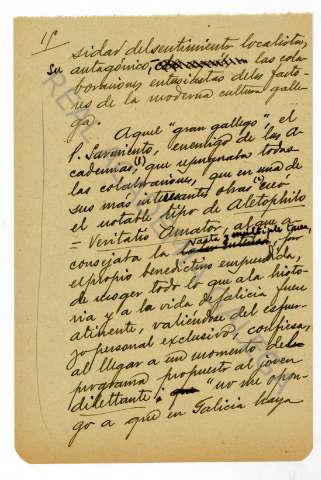 15
sidad del sentimiento localista,
su antagónico, las cola-
boraciones entusiastas de los facto-
res de la moderna cultura galle-
ga.
Aquel "gran gallego", el
P. Sarmiento, enemigo de las A-
cademias,(1) que repugnaba todas
las colaboraciones, que en una de
sus más interesantes obras (2) creó
el notable tipo de Aletophilo
= Veritatis Amator, al que a-
consejaba la vasta y múltiple tarea, por
el propio benedictino emprendida,
de recoger todo lo que a la histo-
ria y a la vida de Galicia fuera
atinente, valiéndose del esfuer-
zo personal exclusivo, confiesa,
al llegar a un momento del
programa propuesto al joven
dilettante: "no me opon-
go a que en Galicia haya